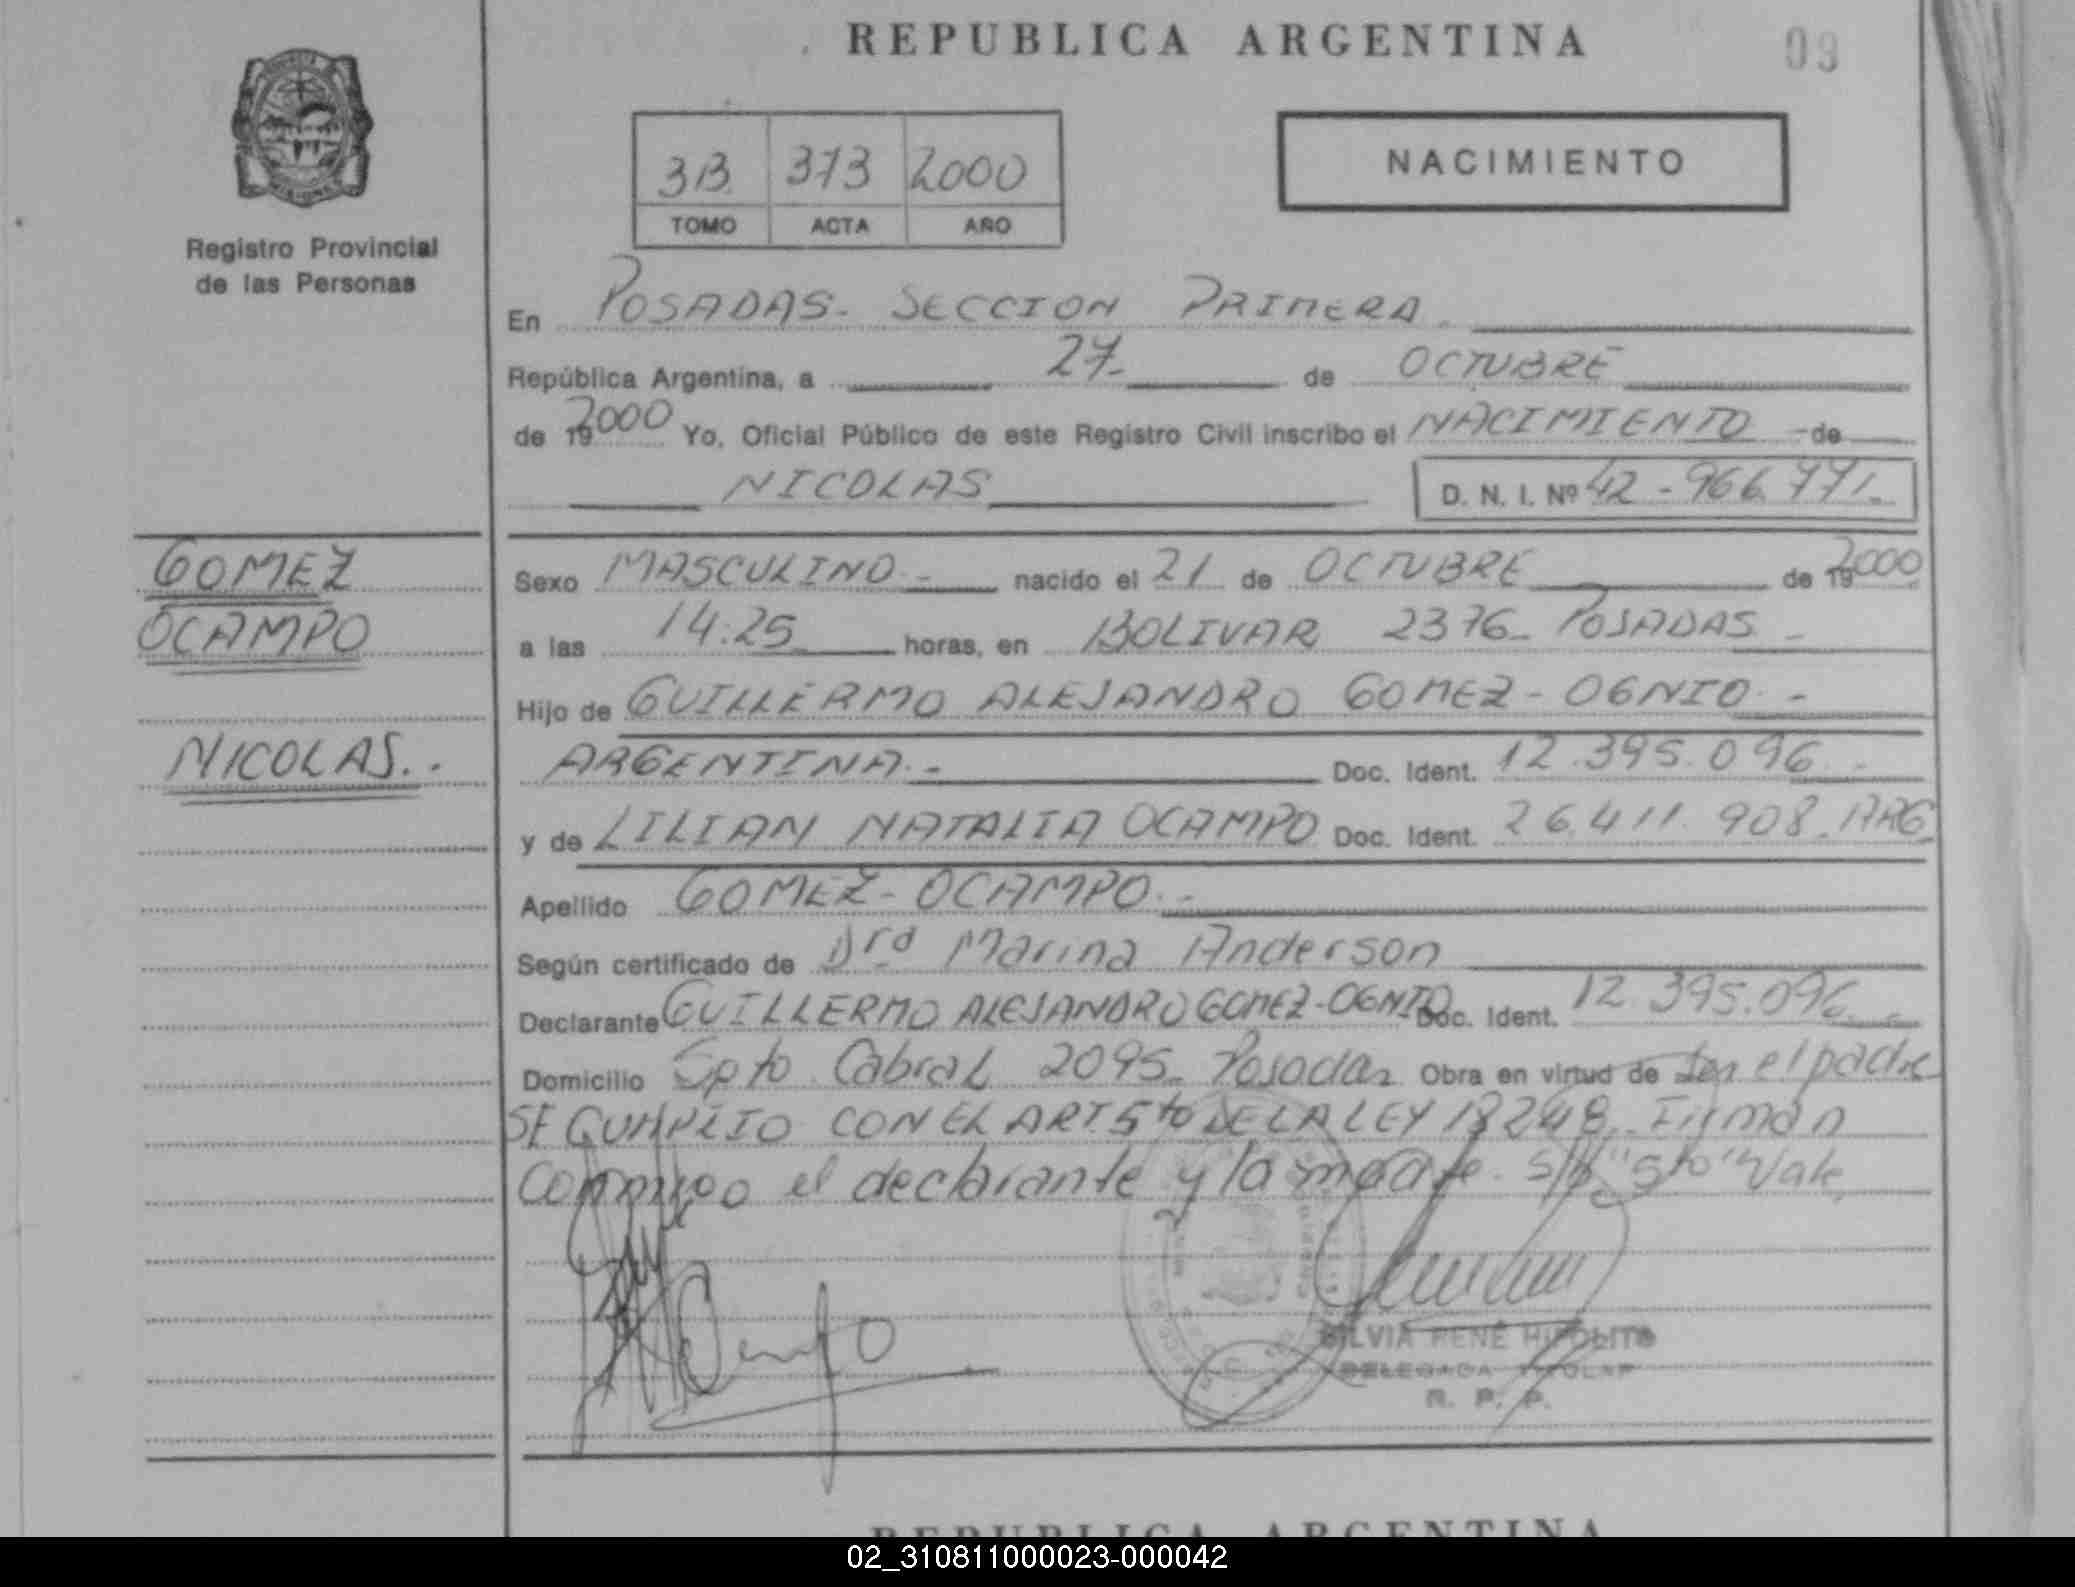 REPUBLICA ARGENTINA
09
3B 373 2000
TOMO ACTA AÑO
NACIMIENTO
Registro Provincial
de las Personas
En POSADAS- SECCION PRIMERA
República Argentina, a 27- de OCTUBRE
de 19 2000 Yo, Oficial Público de este Registro Civil inscribo el NACIMIENTO - de
NICOLAS D. N. I. Nº 42-966.771-
GOMEZ
OCAMPO
NICOLAS.-
Sexo MASCULINO.- nacido el 21 de OCTUBRE de 19 2000
a las 14:25 horas, en BOLIVAR 2376- POSADAS -
Hijo de GUILLERMO ALEJANDRO GOMEZ-OGNIO.-
ARGENTINA.- Doc. Ident. 12.395.096.-
y de LILIAN NATALIA OCAMPO Doc. Ident. 26.411.908. ARG
Apellido GOMEZ-OCAMPO.-
Según certificado de Dra Marina Anderson
Declarante GUILLERMO ALEJANDRO GOMEZ-OGNIO Doc. Ident. 12.395.096.-
Domicilio Cabral 2095- Posadas Obra en virtud de Ser el padre
SE CUMPLIO CON EL ART 5to DE LA LEY 18248. Firman
Conmigo el declarante y la madre. S/b "5to" Vale
SILVIA RENÉ HIPOLITO
DELEGADA TITULAR
R. P. P.
REPUBLICA ARGENTINA
02_310811000023-000042